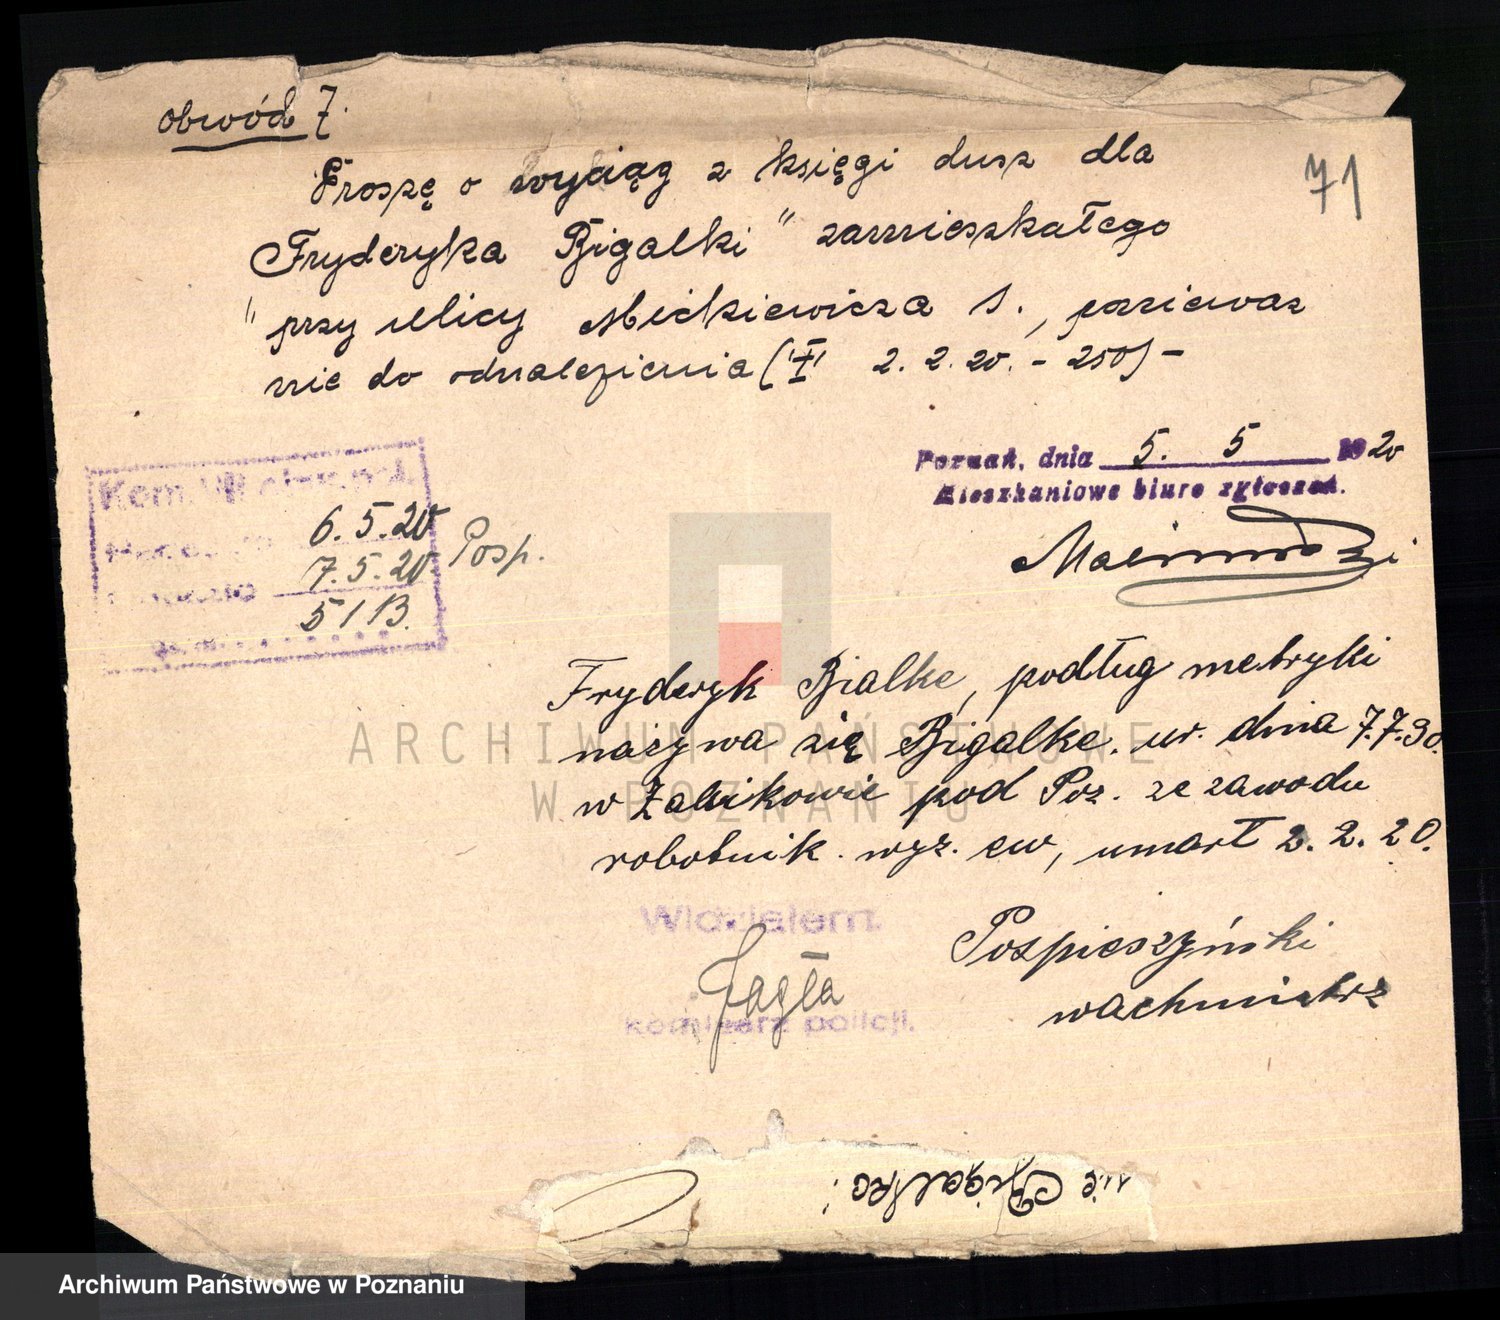 obwód 7.
71
Proszę o wyciąg z księgi dusz dla
Fryderyka Bigalki " zamieszkałego
" przy ulicy Mickiewicza 1., ponieważ
nie do odnalezienia ( 2. 2. 20. - 250) -
Poznań, dnia 5. 5 1920
Mieszkaniowe biuro zgłoszeń.
Kom.
6.5.20
7.5.20 Posp.
51 B.
Fryderyk Bialke, podług metryki
nazywa się Bigalke. ur. dnia 7.7.30.
w Żabikowie pod Poz. ze zawodu
robotnik. wyz. ew, umarł 2. 2. 20.
Widziałem.
Jagła
komisarz policji.
Pospieszyński
wachmistrz
nie Bigalka!
ARCHIWUM PAŃSTWOWE
W POZNANIU
Archiwum Państwowe w Poznaniu